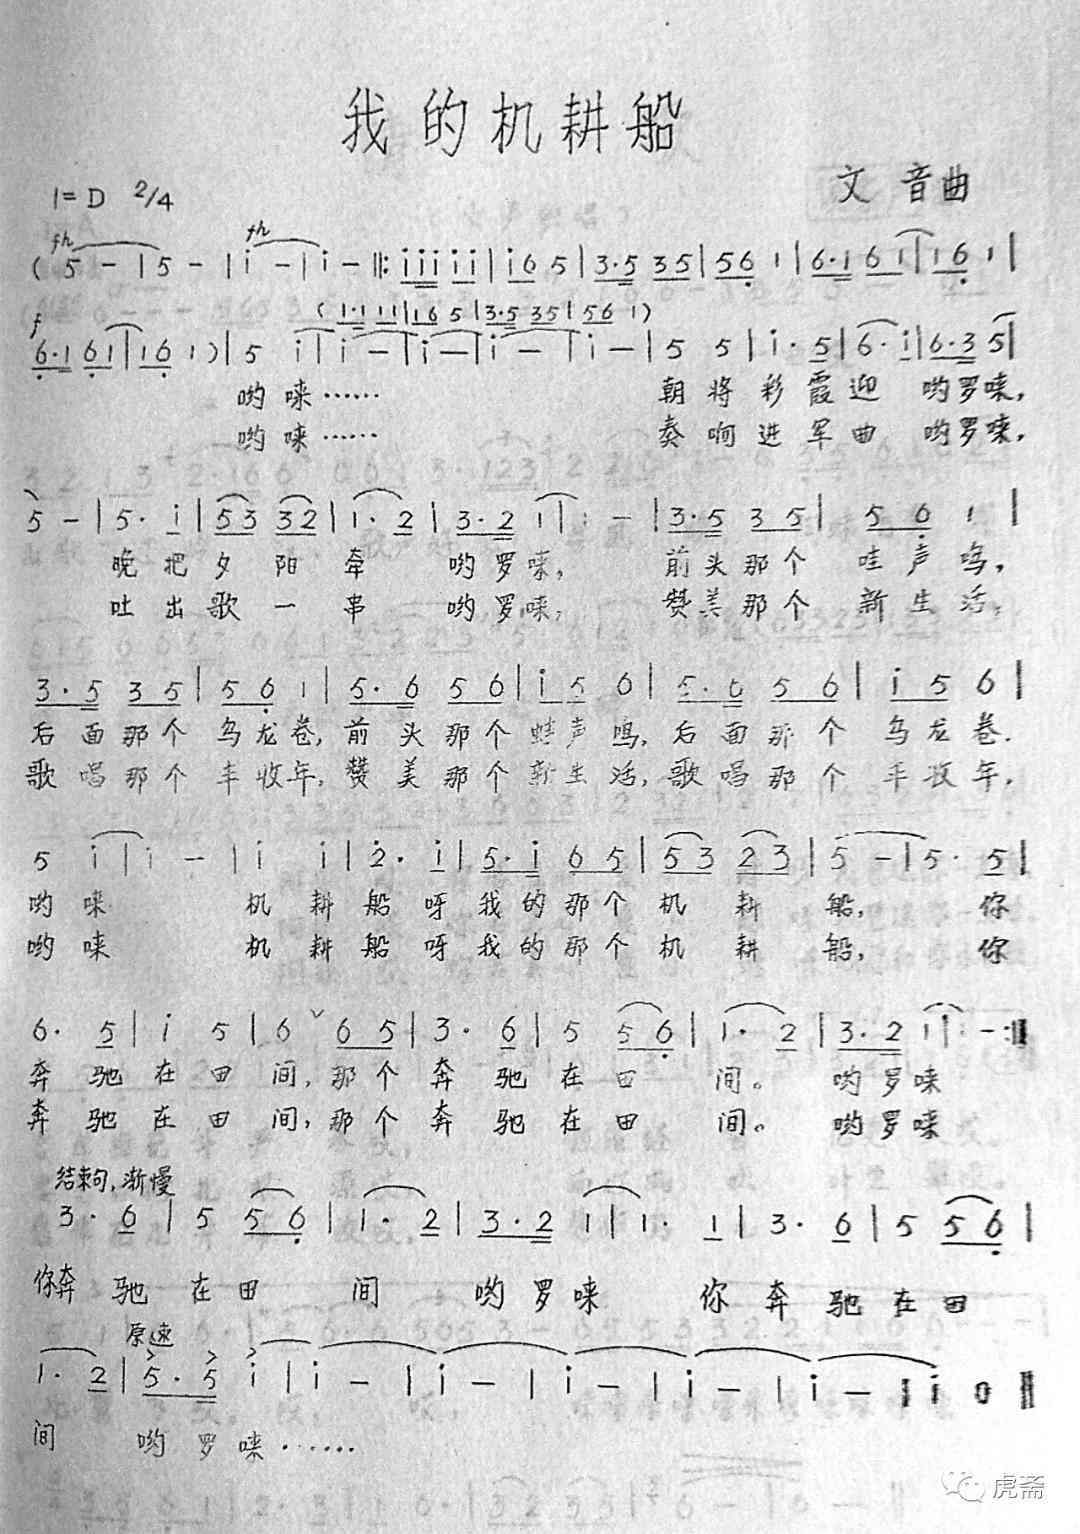 我的机耕船
1=D 2/4
文音曲
fp fp
( 5 - | 5 - | i - | i - ‖: i i i i i | i 6 5 | 3·5 3 5 | 5 6 1 | 6·1 6 1 | 1 6 1 |
f ( 1·1 1 1 | 1 6 5 | 3·5 3 5 | 5 6 1 )
6·1 6 1 | 1 6 1 ) | 5 i | i - | i - | i - | i - | 5 5 | i· 5 | 6· i | 6·3 5 |
哟唻…… 朝将彩霞迎 哟罗唻,
哟唻…… 奏响进军曲 哟罗唻,
5 - | 5· i | 5 3 3 2 | 1· 2 | 3·2 1 | 1 - | 3·5 3 5 | 5 6 1 |
晚把夕阳牵 哟罗唻, 前头那个哇声鸣,
吐出歌一串 哟罗唻, 赞美那个新生活,
3·5 3 5 | 5 6 1 | 5·6 5 6 | i 5 6 | 5·6 5 6 | i 5 6 |
后面那个乌龙卷,前头那个蛙声鸣,后面那个乌龙卷.
歌唱那个丰收年,赞美那个新生活,歌唱那个丰收年.
5 i | i - | i i | 2· i | 5·i 6 5 | 5 3 2 3 | 5 - | 5· 5 |
哟唻 机耕船呀我的那个机耕船, 你
哟唻 机耕船呀我的那个机耕船, 你
6· 5 | i 5 | 6 ˅ 6 5 | 3· 6 | 5 5 6 | 1· 2 | 3·2 1 | 1 - :‖
奔驰在田间,那个奔驰在田间。哟罗唻
奔驰在田间,那个奔驰在田间。哟罗唻
结束句,渐慢
3· 6 | 5 5 6 | 1· 2 | 3·2 1 | 1· 1 | 3· 6 | 5 5 6 |
你奔驰在田间 哟罗唻 你奔驰在田
原速
1· 2 | 5·5 i | i - | i - | i - | i - | i - | i 0 ‖
间 哟罗唻……
虎斋